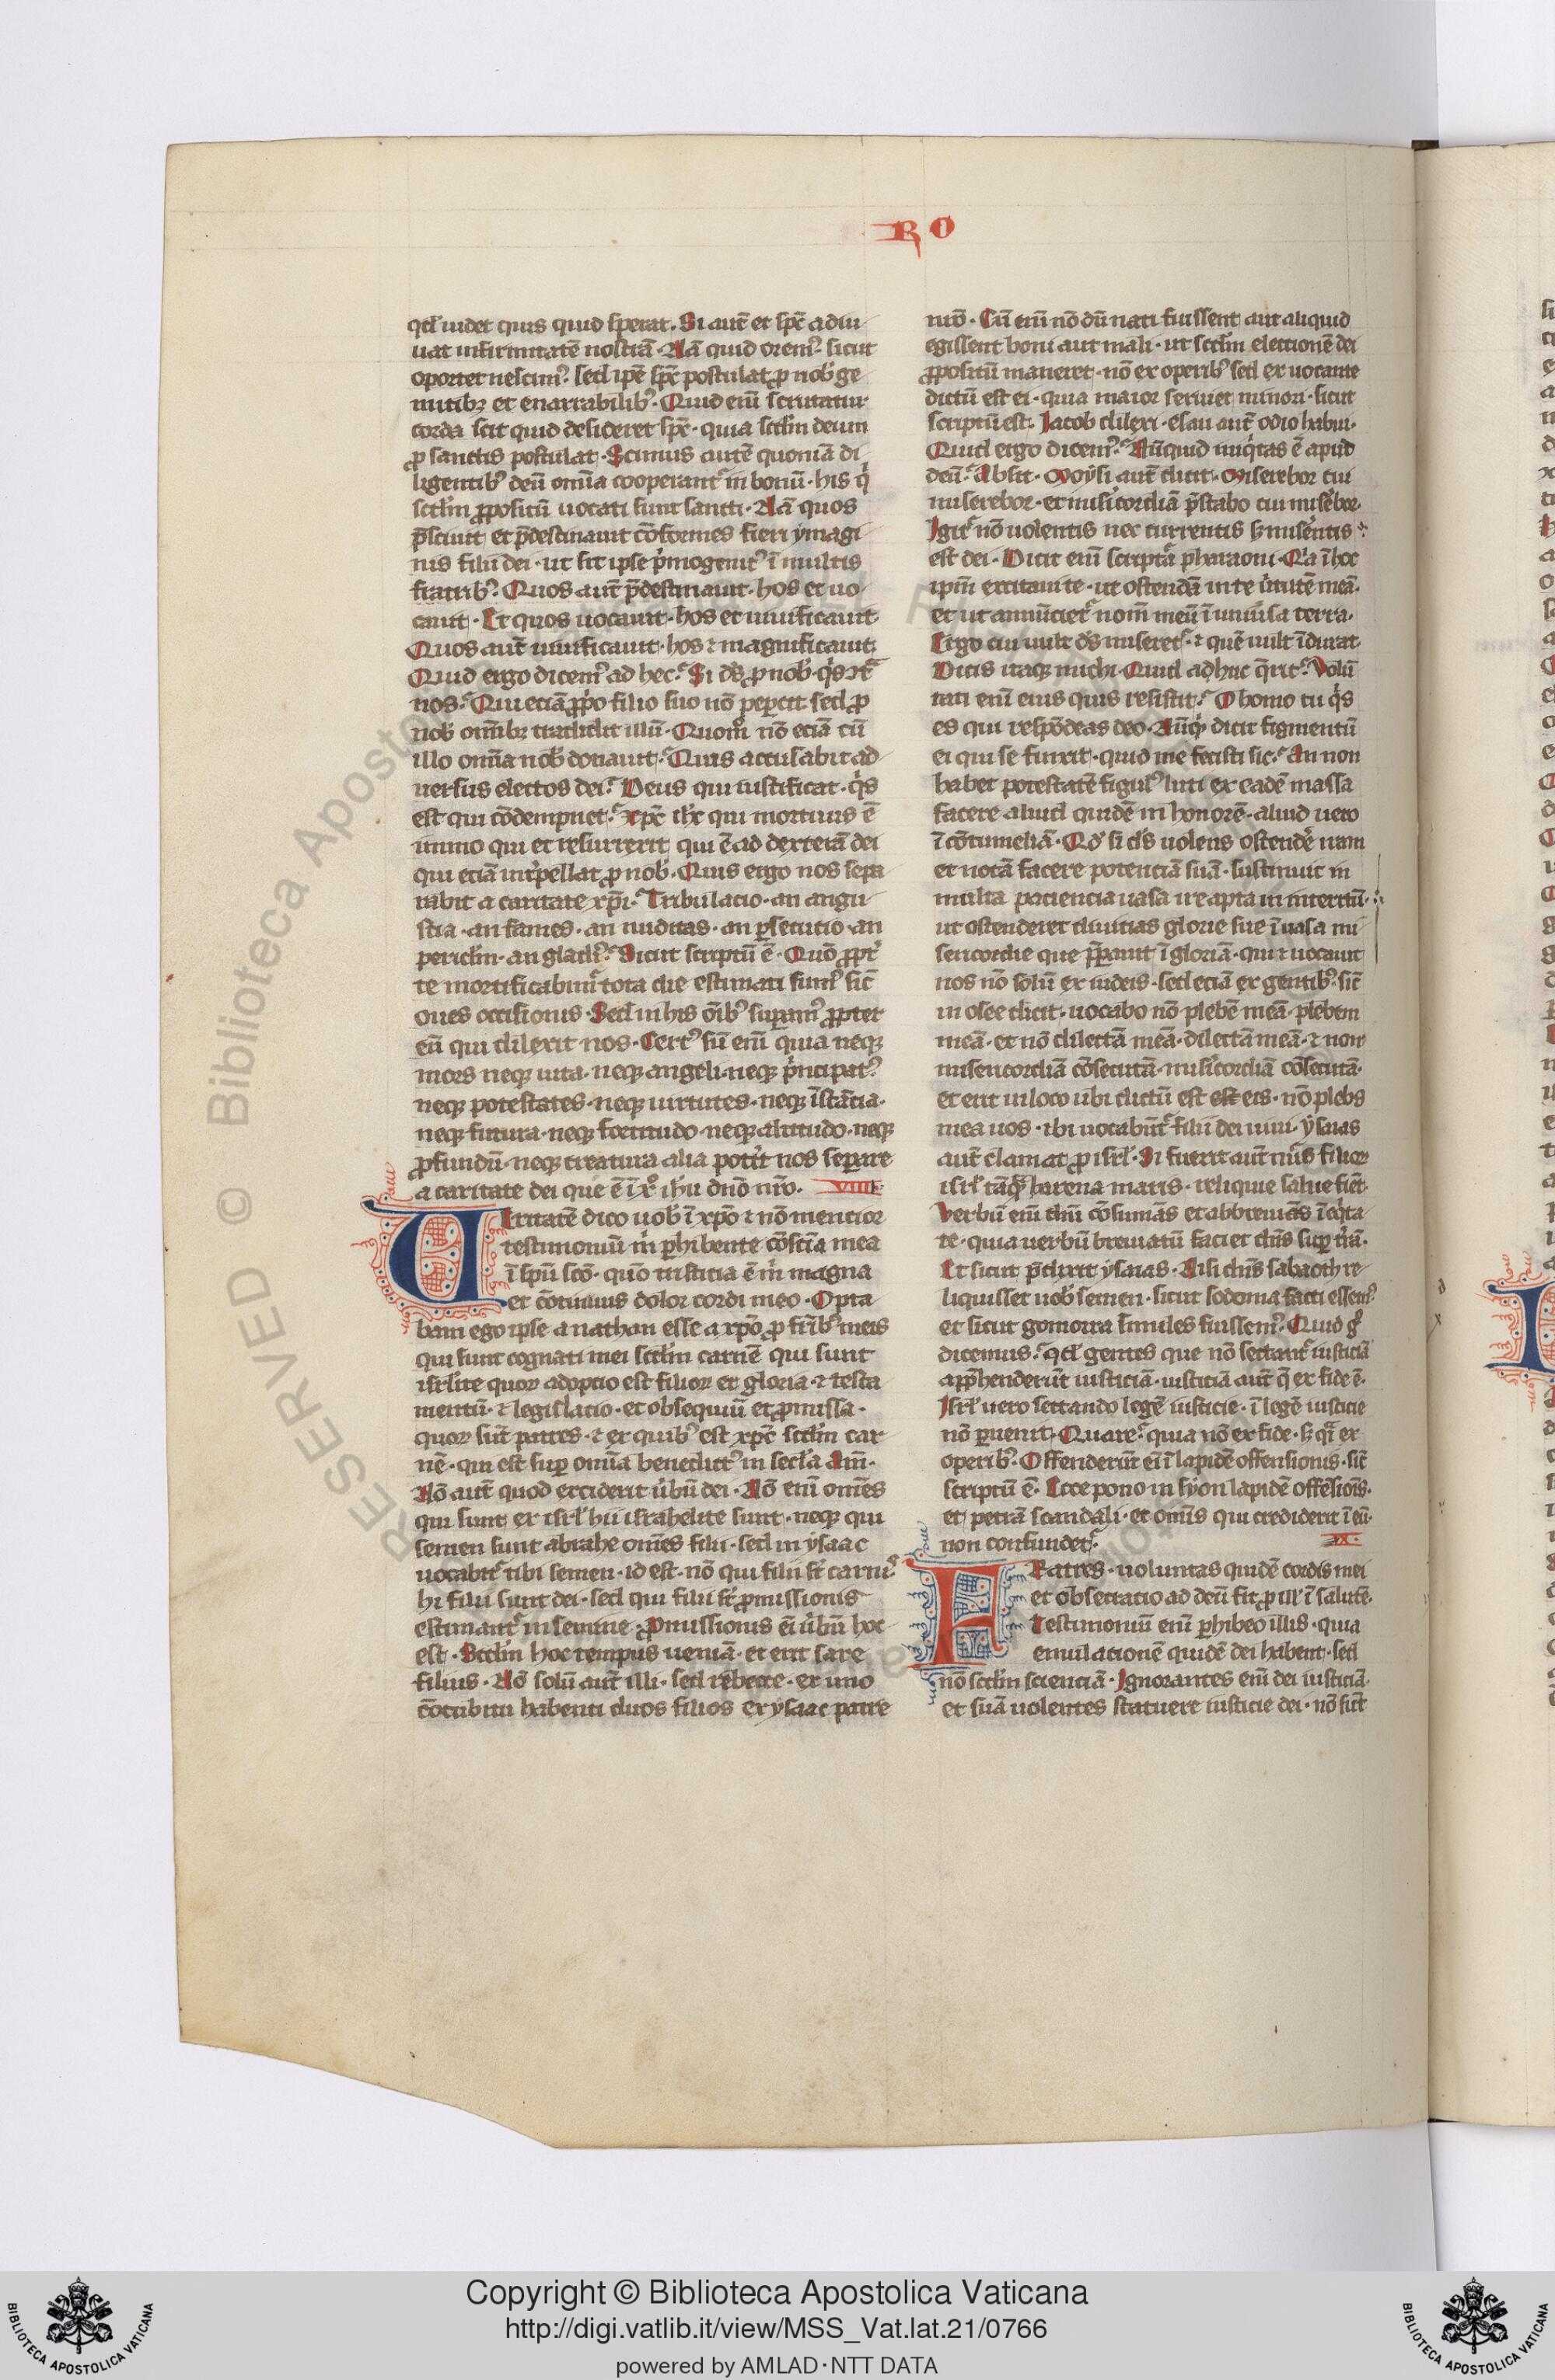 RO
qd̃ uidet quis quid sperat. Si aut̃ et spc̃ adiu
uat infirmitatẽ nostrã. Nã quid orem᷒ sicut
oportet nescim᷒. sed ipẽ spc̃ postulat ꝓ nob̾ ge
mitibꝫ et enarrabilib᷒. Quid eni᷒ scrutatur
corda scit quid desideret spc̃. quia scd̃m deum
ꝓ sanctis postulat. Scimus autẽ quoniã di
ligentib᷒ deũ om̃ia cooperant᷑ in bonũ. his q̇
scd̃m ꝓpositũ uocati sunt sancti. Nã quos
p̃sciuit et p̃destinauit cõformes fieri ymagi
nis filii dei. ut sit ipse ṗmogenit᷒ ĩ multis
fratrib᷒. Quos aut̃ p̃destinauit. hos et uo
cauit. Et quos uocauit. hos et iustificauit.
Quos aut̃ iustificauit. hos ⁊ magnificauit.
Quid ergo dicem᷒ ad hec. Si ds̃ ꝓ nob̾. q̇s ↄt᷑
nos. Qui eciã ꝓṗo filio suo nõ peꝑcit sed ꝓ
nob̾ om̃ibꝫ tradidit illũ. Quom̊ nõ eciã cũ
illo om̃ia nob̾ donauit. Quis accusabit ad
uersus electos dei. Deus qui iustificat. q̇s
est qui cõdempnet. xpc̃ ihc̃ qui mortuus ẽ
immo qui et resurrexit qui ẽ ad dexterã dei
qui eciã int̾pellat ꝓ nob̾. Quis ergo nos sepa
rabit a caritate xpĩ. Tribulacio. an angu
stia. an fames. an nuditas. an ꝑsecutio. an
pericl̃m. an gladi᷒. Sicut scriptũ ẽ. Quõ ꝓpt̾
te mortificabim᷑ tota die estimati sum᷒ sic̃
oues occisionis. Sed in his õib᷒ suꝑam᷒ ꝓpter
eũ qui dilexit nos. Cert᷒ sũ eni᷒ quia neqꝫ
mors neqꝫ uita. neqꝫ angeli. neqꝫ ṗncipat᷒.
neqꝫ potestates. neqꝫ uirtutes. neqꝫ ĩstãcia.
neqꝫ futura. neqꝫ fortitudo. neqꝫ altitudo. neqꝫ
ꝓfundũ. neqꝫ creatura alia pot̾it nos seꝑare
a caritate dei que ẽ ĩ xp̊ ihũ dnõ nr̃o. VIIII.
UEritatẽ dico uob̾ ĩ xpõ ⁊ nõ mencior
testimoniũ m̾ ꝑhibente cõsciã mea
ĩ spũ scõ. quõ tristicia ẽ m̾ magna
et cõtinuus dolor cordi meo. Opta
bam ego ipse anathan esse a xpõ ꝓ fr̃ib᷒ meis
qui sunt cognati mei scd̃m carnẽ qui sunt
isrl̃ite quoꝝ adoptio est filioꝝ et gloria. ⁊ testa
mentũ. ⁊ legislacio. et obsequiũ et ꝓmissa.
quoꝝ sũt patres. ⁊ ex quib᷒ est xpc̃ scd̃m car
nẽ. qui est suꝑ om̃ia benedict᷒ in secl̃a Am̃.
Nõ aut̃ quod exciderit ũbũ dei. Nõ eni᷒ om̃es
qui sunt ex isrl̃ hii israhelite sunt. neqꝫ qui
semen sunt abrahe om̃es filii. sed in ysaac
uocabit᷑ tibi semen. id est. nõ qui filii st̃ carnis
hi filii sunt dei. sed qui filii st̃ ꝓmissionis
estimant᷑ in semine. Promissionis ei᷒ ũbũ hoc
est. Scd̃m hoc tempus ueniã. et erit sare
filius. Nõ solũ aut̃ illi. sed rebecce. ex uno
cõcubitu habenti duos filios ex ysaac patre
nr̃o. Cũ eni᷒ nõdũ nati fuissent aut aliquid
egissent boni aut mali. ut scd̃m electionẽ dei
ꝓpositũ maneret. nõ ex operib᷒ sed ex uocante
dictũ est ei. quia maior seruiet minori. sicut
scriptũ est. Jacob dilexi. esau aut̃ odio habui.
Quid ergo dicem᷒. Nũquid iniq̇tas ẽ apud
deũ. Absit. Moysi aut̃ dicit. Miserebor cui
miserebor. et mis̃icordiã p̃stabo cui mis̃ebor.
Igit᷑ nõ uolentis nec currentis sꝫ mis̃entis
est dei. Dicit eni᷒ scriptã pharaoni. Q̇a ĩ hoc
ipm̃ excitaui te. ut ostendã in te ũtutẽ meã.
et ut annũciet᷑ nom̃ meũ ĩ uniũsa terra.
Ergo cui uult ds̃ miseret᷑. ⁊ quẽ uult ĩdurat.
Dicis itaqꝫ michi. Quid adhuc q̃rit᷑. Volũ
tati eni᷒ eius quis resistit. O homo tu q̇s
es qui respõdeas deo. Nũq̇d dicit figmentũ
ei qui se finxit. quid me fecisti sic. An non
habet potestatẽ figul᷒ luti ex eadẽ massa
facere aliud quidẽ in honorẽ. aliud uero
ĩ cõtumeliã. Qd̾ si ds̃ uolens ostend̾e iram
et notã facere potenciã suã. sustinuit in
multa paciencia uasa ire apta in interitũ.
ut ostenderet diuitias glorie sue ĩ uasa mi
sericordie que p̃parauit ĩ gloriã. qui ⁊ uocauit
nos nõ solũ ex iudeis. sed eciã ex gentib᷒. sic̃
in osee dicit. uocabo nõ plebẽ meã. plebem
meã. et nõ dilectã meã. dilectã meã. ⁊ non
misericordiã cõsecutã. mis̃icordiã cõsecutã.
et erit in loco ubi dictũ est est eis. nõ plebs
mea uos. ibi uocabũt᷑ filii dei uiui. ysaias
aut̃ clamat ꝓ isrl̃. Si fuerit aut̃ nũs filioꝝ
isrl̃ tãqᷓ harena maris. reliquie salue fiẽt.
Verbũ eni᷒ dñi cõsumãs et abbreuiãs ĩ eq̇ta
te. quia uerbũ breuiatũ faciet dñs suꝑ t̃rã.
Et sicut p̃dixit ysaias. Nisi dñs sabaoth re
liquisset nob̾ semen. sicut sodoma facti essem᷒.
et sicut gomorra similes fuissem᷒. Quid g̊
dicemus. qd̃ gentes que nõ sectant᷑ iusticiã
app̃henderũt iusticiã. iusticiã aut̃ q̃ ex fide ẽ.
Isrl̃ uero sectando legẽ iusticie. ĩ legẽ iusticie
nõ ꝑuenit. Quare. quia nõ ex fide. sꝫ qᷓi ex
operib᷒. Offenderũt ei᷒ ĩ lapidẽ offensionis. sic̃
scriptũ ẽ. Ecce pono in syon lapidẽ offẽsiõis.
et petrã scandali. et om̃is qui crediderit ĩ eũ.
non confundet᷑. X.
FRatres. uoluntas quidẽ cordis mei
et obsecracio ad deũ fit ꝓ ill̾ ĩ salutẽ.
Testimoniũ eni᷒ ꝑhibeo illis. quia
emulacionẽ quidẽ dei habent. sed
nõ scd̃m scienciã. Ignorantes eni᷒ dei iusticiã.
et suã uolentes statuere iusticie dei. nõ sũt
Copyright © Biblioteca Apostolica Vaticana
http://digi.vatlib.it/view/MSS_Vat.lat.21/0766
powered by AMLAD·NTT DATA
BIBLIOTECA APOSTOLICA VATICANA
BIBLIOTECA APOSTOLICA VATICANA